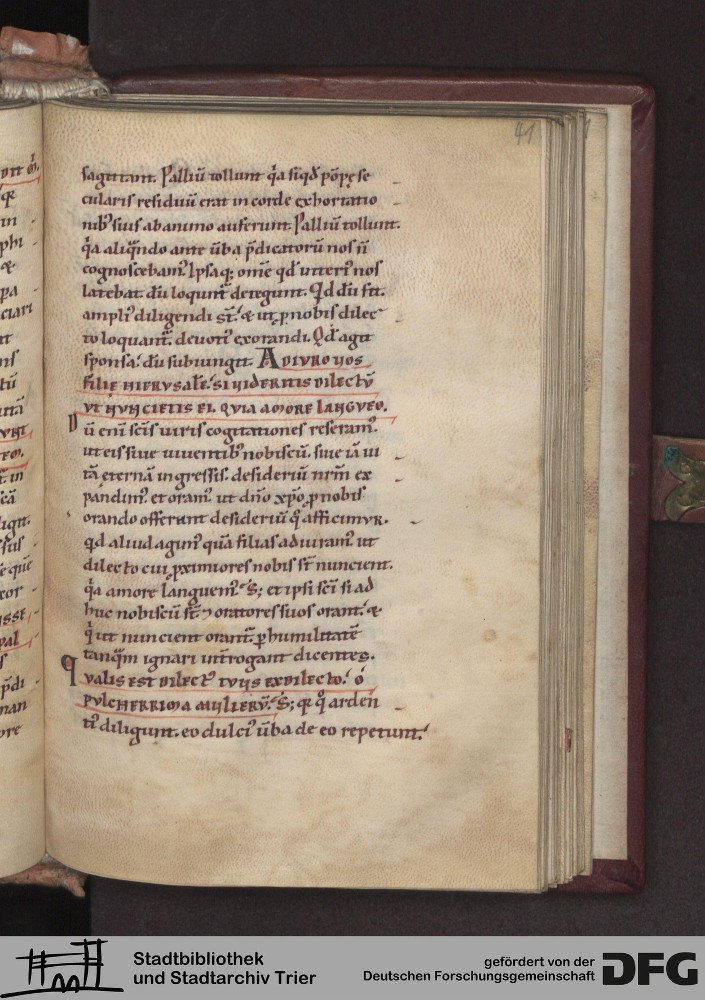 41
sagittant. Palliū tollunt q̇a siqd̄ pōpę se
cularis residuū erat in corde exhortatio
nibꝫ suis ab animo auferunt. Palliū tollunt.
q̇a aliqn̄do ante ūba p̄dicatorū nos ñ
cognoscebam᷒. Ipsaqꝫ om̄e qd̄ utteri᷒ nos
latebat dū loqunt᷒ detegunt. Qd̄ dū fit.
ampli᷒ diligendi st̄. & ut ꝓ nobis dilec
to loquant᷒. deuoti᷒ exorandi. Qd̄ agit
sponsa. dū subiungit. ADIVRO VOS
FILIĘ HIERVSALĒ. SI VIDERITIS DILECTŪ
VT NVNCIETIS EI. QVIA AMORE LANGVEO.
Dū eni sc̄is uiris cogitationes reseram᷒.
ut eis siue uiuentibꝫ nobiscū. siue iā ui
tā eternā ingressis. desideriū nr̄m ex
pandim᷒. et oram᷒. ut dn̄o xp̄o ꝓ nobis
orando offerant desideriū q̊ afficimur.
qd̄ aliud agim᷒ quā filias adiuram᷒ ut
dilecto cui ꝓximiores nobis st̄ nuncient.
q̇a amore languem᷒. Sꝫ et ipsi sc̄i si ad
huc nobiscū st̄ ⁊ oratores suos orant. &
q̇ ut nuncient orant᷒. ꝑ humilitatē
tanq̄m ignari int̄rogant dicentes.
QVALIS EST DILECT᷒ TVVS EX DILECTO. Ó
PVLCHERRIMA MVLIERV̄. Sꝫ qꝛ q̊ arden
ti᷒ diligunt. eo dulci᷒ ūba de eo repetunt.
Stadtbibliothek
und Stadtarchiv Trier
gefördert von der
Deutschen Forschungsgemeinschaft
DFG